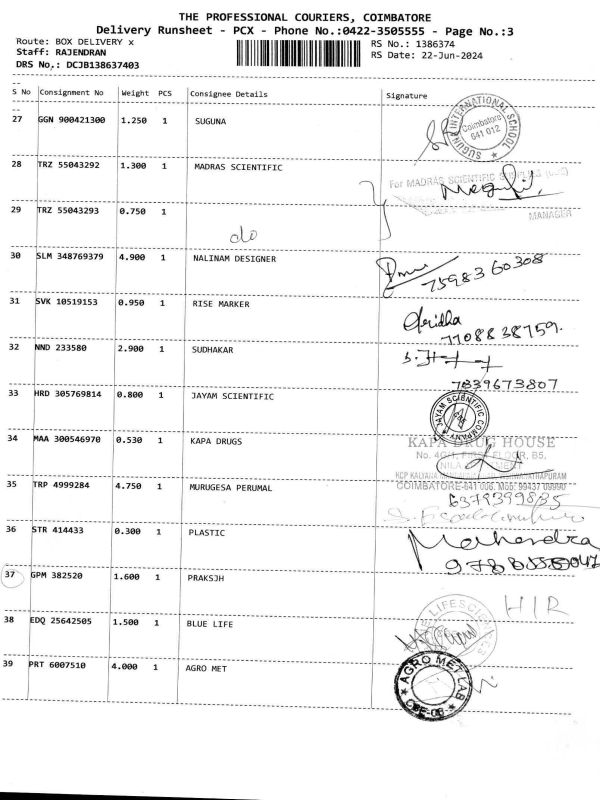 THE PROFESSIONAL COURIERS, COIMBATORE
Delivery Runsheet - PCX - Phone No.:0422-3505555 - Page No.:3
Route: BOX DELIVERY x
Staff: RAJENDRAN
DRS No,: DCJB138637403
RS No.: 1386374
RS Date: 22-Jun-2024
S No Consignment No Weight PCS Consignee Details Signature
27 GGN 900421300 1.250 1 SUGUNA
SUGUNA INTERNATIONAL SCHOOL
Coimbatore
641 012
28 TRZ 55043292 1.300 1 MADRAS SCIENTIFIC
For MADRAS SCIENTIFIC
MANAGER
29 TRZ 55043293 0.750 1
do
30 SLM 348769379 4.900 1 NALINAM DESIGNER
7598360308
31 SVK 10519153 0.950 1 RISE MARKER
7708838759.
32 NND 233580 2.900 1 SUDHAKAR
7339673807
33 HRD 305769814 0.800 1 JAYAM SCIENTIFIC
JAYAM SCIENTIFIC COMPANY
34 MAA 300546970 0.530 1 KAPA DRUGS
KAPA DRUG HOUSE
No. 4G/1, FIRST FLOOR, B5,
COIMBATORE-641 006. Mob: 99437 09990
35 TRP 4999284 4.750 1 MURUGESA PERUMAL
36 STR 414433 0.300 1 PLASTIC
Mahendra
37 GPM 382520 1.600 1 PRAKSJH
HIR
38 EDQ 25642505 1.500 1 BLUE LIFE
LIFESCIENCES
39 PRT 6007510 4.000 1 AGRO MET
AGRO MET LAB
CBE-06